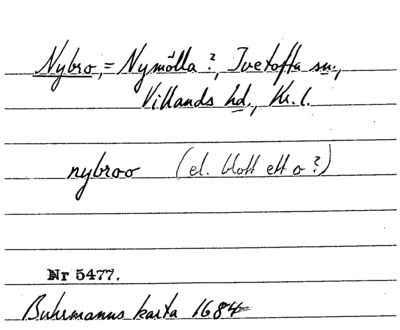 Nybro, = Nymölla?, Ivetofta sn.,
Villands hd., Kr. l.
nybroo (el. blott ett o?)
Nr 5477.
Buhrmanns karta 1684